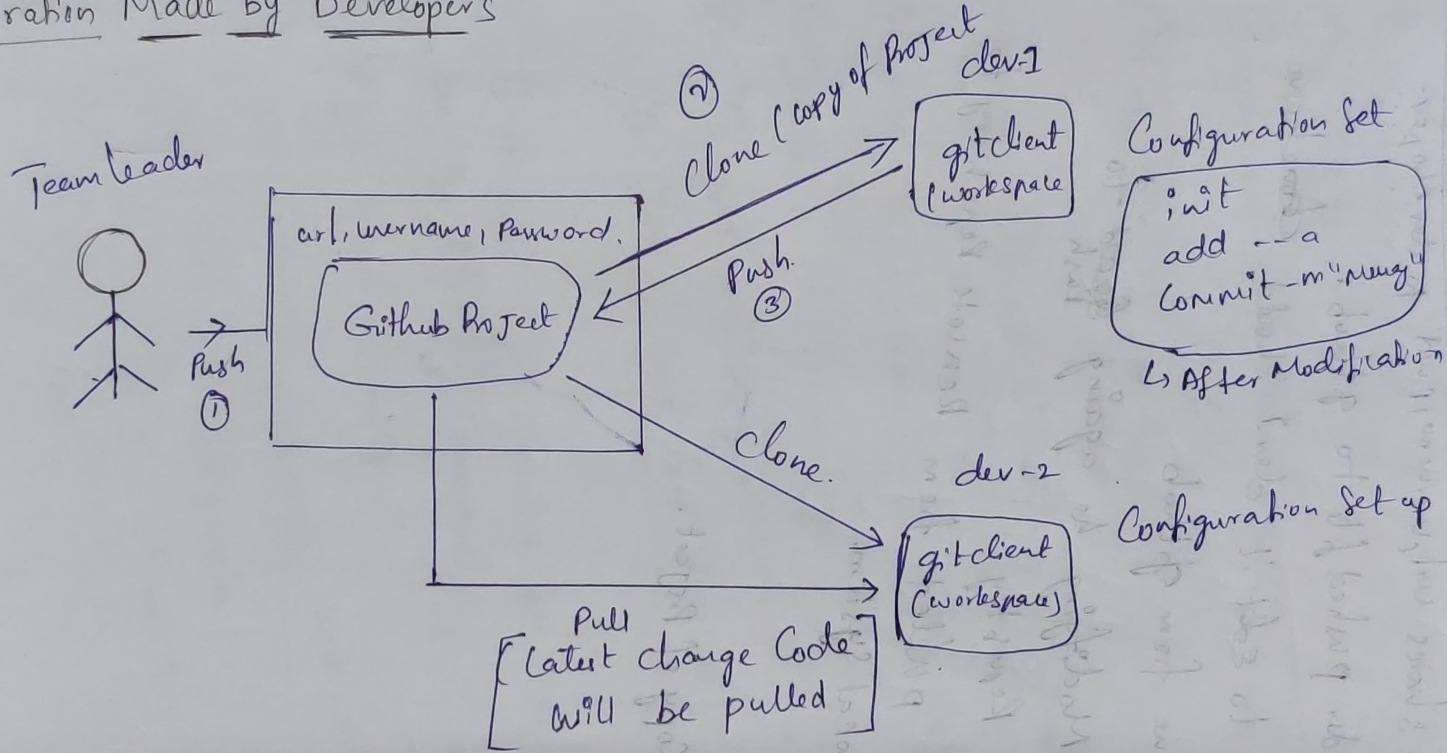 ration Made by Developers
Team leader
Push
①
url, username, Password.
Github Project
②
Clone (copy of Project
Push.
③
dev-1
gitclient
(workspace
Configuration Set
init
add --a
Commit -m "
↳ After Modification
Clone.
dev-2
gitclient
(workspace)
Configuration Set up
Pull
[Latest change Code
will be pulled]